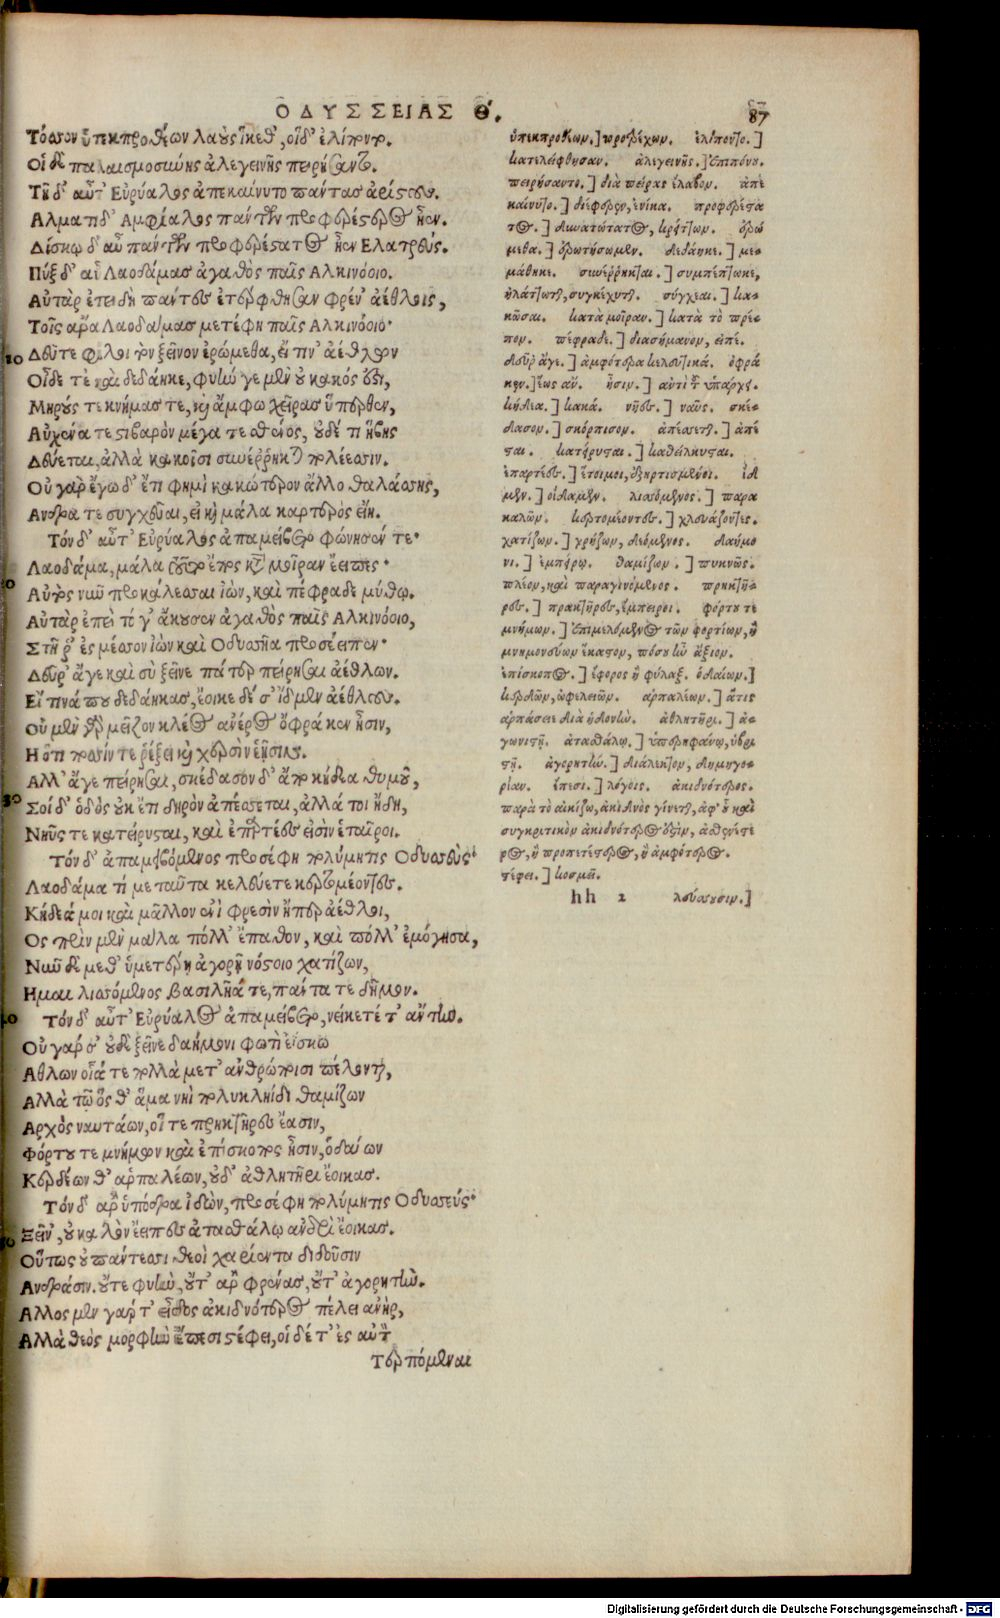 ΟΔΥΣΣΕΙΑΣ Θ.
87
Τόσσον ὑπεκπροθέων λαοὺς ἵκεθ', οἱ δ' ἐλίποντο.
Οἱ δὲ παλαισμοσύνης ἀλεγεινῆς πειρήσαντο.
Τῇ δ' αὖτ' Εὐρύαλος ἀπεκαίνυτο πάντας ἀρίστους.
Αλματι δ' Αμφίαλος πάντων προφερέστερος ἦεν.
Δίσκῳ δ' αὖ πάντων προφερέστατος ἦεν Ελατρεύς.
Πὺξ δ' αὖ Λαοδάμας ἀγαθὸς παῖς Αλκινόοιο.
Αὐτὰρ ἐπειδὴ πάντες ἐτέρφθησαν φρέν' ἀέθλοις,
Τοῖς ἄρα Λαοδάμας μετέφη παῖς Αλκινόοιο·
10 Δεῦτε φίλοι τὸν ξεῖνον ἐρώμεθα, εἴ τιν' ἄεθλον
Οἶδε τὲ καὶ δεδάηκε, φυὴν γε μὲν οὐ κακός ἐστι,
Μηρούς τε κνήμας τε, καὶ ἄμφω χεῖρας ὕπερθεν,
Αὐχένα τε στιβαρὸν μέγα τε σθένος, οὐδέ τι ἥβης
Δεύεται, ἀλλὰ κακοῖσι συνέρρηκται πολέεσσιν.
Οὐ γὰρ ἔγωδ' ἔτι φημὶ κακώτερον ἄλλο θαλάσσης,
Ανδρα τε συγχεῦαι, εἰ καὶ μάλα καρτερὸς εἴη.
Τόν δ' αὖτ' Εὐρύαλος ἀπαμείβετο φώνησέν τε·
Λαοδάμα, μάλα τοῦτο ἔπος κατὰ μοῖραν ἔειπες·
Αὐτὸς νῦν προκάλεσσαι ἰὼν, καὶ πέφραδε μύθῳ.
Αὐτὰρ ἐπεὶ τό γ' ἄκουσεν ἀγαθὸς παῖς Αλκινόοιο,
Στῆ ῥ' ἐς μέσσον ἰὼν καὶ Οδυσσῆα προσέειπεν·
Δεῦρ' ἄγε καὶ σὺ ξεῖνε πάτερ πείρησαι ἀέθλων.
Εἴ τινά που δεδάηκας, ἔοικε δέ σ' ἴδμεν ἀέθλους.
Οὐ μὲν γὰρ μεῖζον κλέος ἀνέρος ὄφρά κεν ᾖσιν,
Η ὅτι ποσσίν τε ῥέξει καὶ χερσὶν ἑῇσιν.
Αλλ' ἄγε πείρησαι, σκέδασον δ' ἄπο κήδεα θυμοῦ,
30 Σοὶ δ' ὁδὸς οὐκ ἔτι δηρὸν ἀπέσσεται, ἀλλά τοι ἤδη,
Νηῦς τε κατείρυσται, καὶ ἐπαρτέες εἰσὶν ἑταῖροι.
Τόν δ' ἀπαμειβόμενος προσέφη πολύμητις Οδυσσεὺς·
Λαοδάμα τί με ταῦτα κελεύετε κερτομέοντες.
Κήδεά μοι καὶ μᾶλλον ἐνὶ φρεσὶν ἤπερ ἄεθλοι,
Ος πρὶν μὲν μάλα πόλλ' ἔπαθον, καὶ πόλλ' ἐμόγησα,
Νῦν δὲ μεθ' ὑμετέρῃ ἀγορῇ νόστοιο χατίζων,
Ημαι λισσόμενος βασιλῆά τε, πάντα τε δῆμον.
40 Τόν δ' αὖτ' Εὐρύαλος ἀπαμείβετο, νείκετέ τ' ἄντην.
Οὐ γάρ σ' οὐδὲ ξεῖνε δαήμονι φωτὶ ἐΐσκω
Αθλων οἷά τε πολλὰ μετ' ἀνθρώποισι πέλονται,
Αλλὰ τῷ ὅς θ' ἅμα νηῒ πολυκληίδι θαμίζων
Αρχὸς ναυτάων, οἵ τε πρηκτῆρες ἔασιν,
Φόρτου τε μνήμων καὶ ἐπίσκοπος ᾖσιν, ὁδαίων
Κερδέων θ' ἁρπαλέων, οὐδ' ἀθλητῆρι ἔοικας.
Τόν δ' ἄρ' ὑπόδρα ἰδὼν, προσέφη πολύμητις Οδυσσεύς·
Ξεῖν', οὐ καλὸν ἔειπες ἀτασθάλῳ ἀνδρὶ ἔοικας.
Οὕτως οὐ πάντεσσι θεοὶ χαρίεντα διδοῦσιν
Ανδράσιν. οὔτε φυὴν, οὔτ' ἂρ φρένας, οὔτ' ἀγορητύν.
Αλλος μὲν γάρ τ' εἶδος ἀκιδνότερος πέλει ἀνὴρ,
Αλλὰ θεὸς μορφὴν ἔπεσι στέφει, οἱ δέ τ' ἐς αὐτὸν
Τερπόμεναι
ὑπεκπροθέων.] προτρέχων. ἐλίποντο.]
κατελείφθησαν. ἀλεγεινῆς.] ἐπιπόνου.
πειρήσαντο.] διὰ πείρας ἔλαβον. ἀπε
καίνυτο.] διέφερεν, ἐνίκα. προφερέστα
τος.] δυνατώτατος, κρείττων. ἐρώ
μεθα.] ἐρωτήσωμεν. δεδάηκε.] με-
μάθηκε. συνέρρηκται.] συμπέπτωκε,
ἠλάττωται, συγκέχυται. σύγχεαι.] κα-
κῶσαι. κατὰ μοῖραν.] κατὰ τὸ πρέ-
πον. πέφραδε.] διασήμανον, εἰπέ.
δεῦρ' ἄγε.] ἀμφότερα κελευστικά. ὄφρά
κεν.] ἕως ἄν. ᾖσιν.] ἀντὶ τοῦ ὑπάρχει.
κήδεα.] κακά. νηῦς. ναῦς. σκέ-
δασον.] σκόρπισον. ἀπέσσεται.] ἀπέ
σται. κατείρυσται.] καθείλκυσται.
ἐπαρτέες.] ἕτοιμοι, ἐξηρτισμένοι. ἴδ
μεν.] οἴδαμεν. λισσόμενος.] παρα
καλῶν. κερτομέοντες.] χλευάζοντες.
χατίζων.] χρῄζων, δεόμενος. δαήμο
νι.] ἐμπείρῳ. θαμίζων.] πυκνῶς.
πλέων, καὶ παραγινόμενος. πρηκτῆ-
ρες.] πρακτῆρες, ἔμπειροι. φόρτου τε
μνήμων.] ἐπιμελόμενος τῶν φορτίων, ἢ
μνημονεύων ἕκαστον, πόσου ἦν ἄξιον.
ἐπίσκοπος.] ἔφορος ἢ φύλαξ. ὁδαίων.]
κερδῶν, ὠφελειῶν. ἁρπαλέων.] ἅ τις
ἁρπάσειε διὰ ἡδονήν. ἀθλητῆρι.] ἀ-
γωνιστῇ. ἀτασθάλῳ.] ὑπερηφάνῳ, ὑβρι
στῇ. ἀγορητύν.] διάλεκτον, δημηγο-
ρίαν. ἔπεσι.] λόγοις. ἀκιδνότερος.
παρὰ τὸ αἰκίζω, ἀκιδνὸς γίνεται, ἀφ' οὗ καὶ
συγκριτικὸν ἀκιδνότερος ἐστὶν, ἀσθενέστε
ρος, ἢ προπετέστερος, ἢ ἀμφότερος.
στέφει.] κοσμεῖ.
hh 2 λεύσσουσιν.]
Digitalisierung gefördert durch die Deutsche Forschungsgemeinschaft - DFG